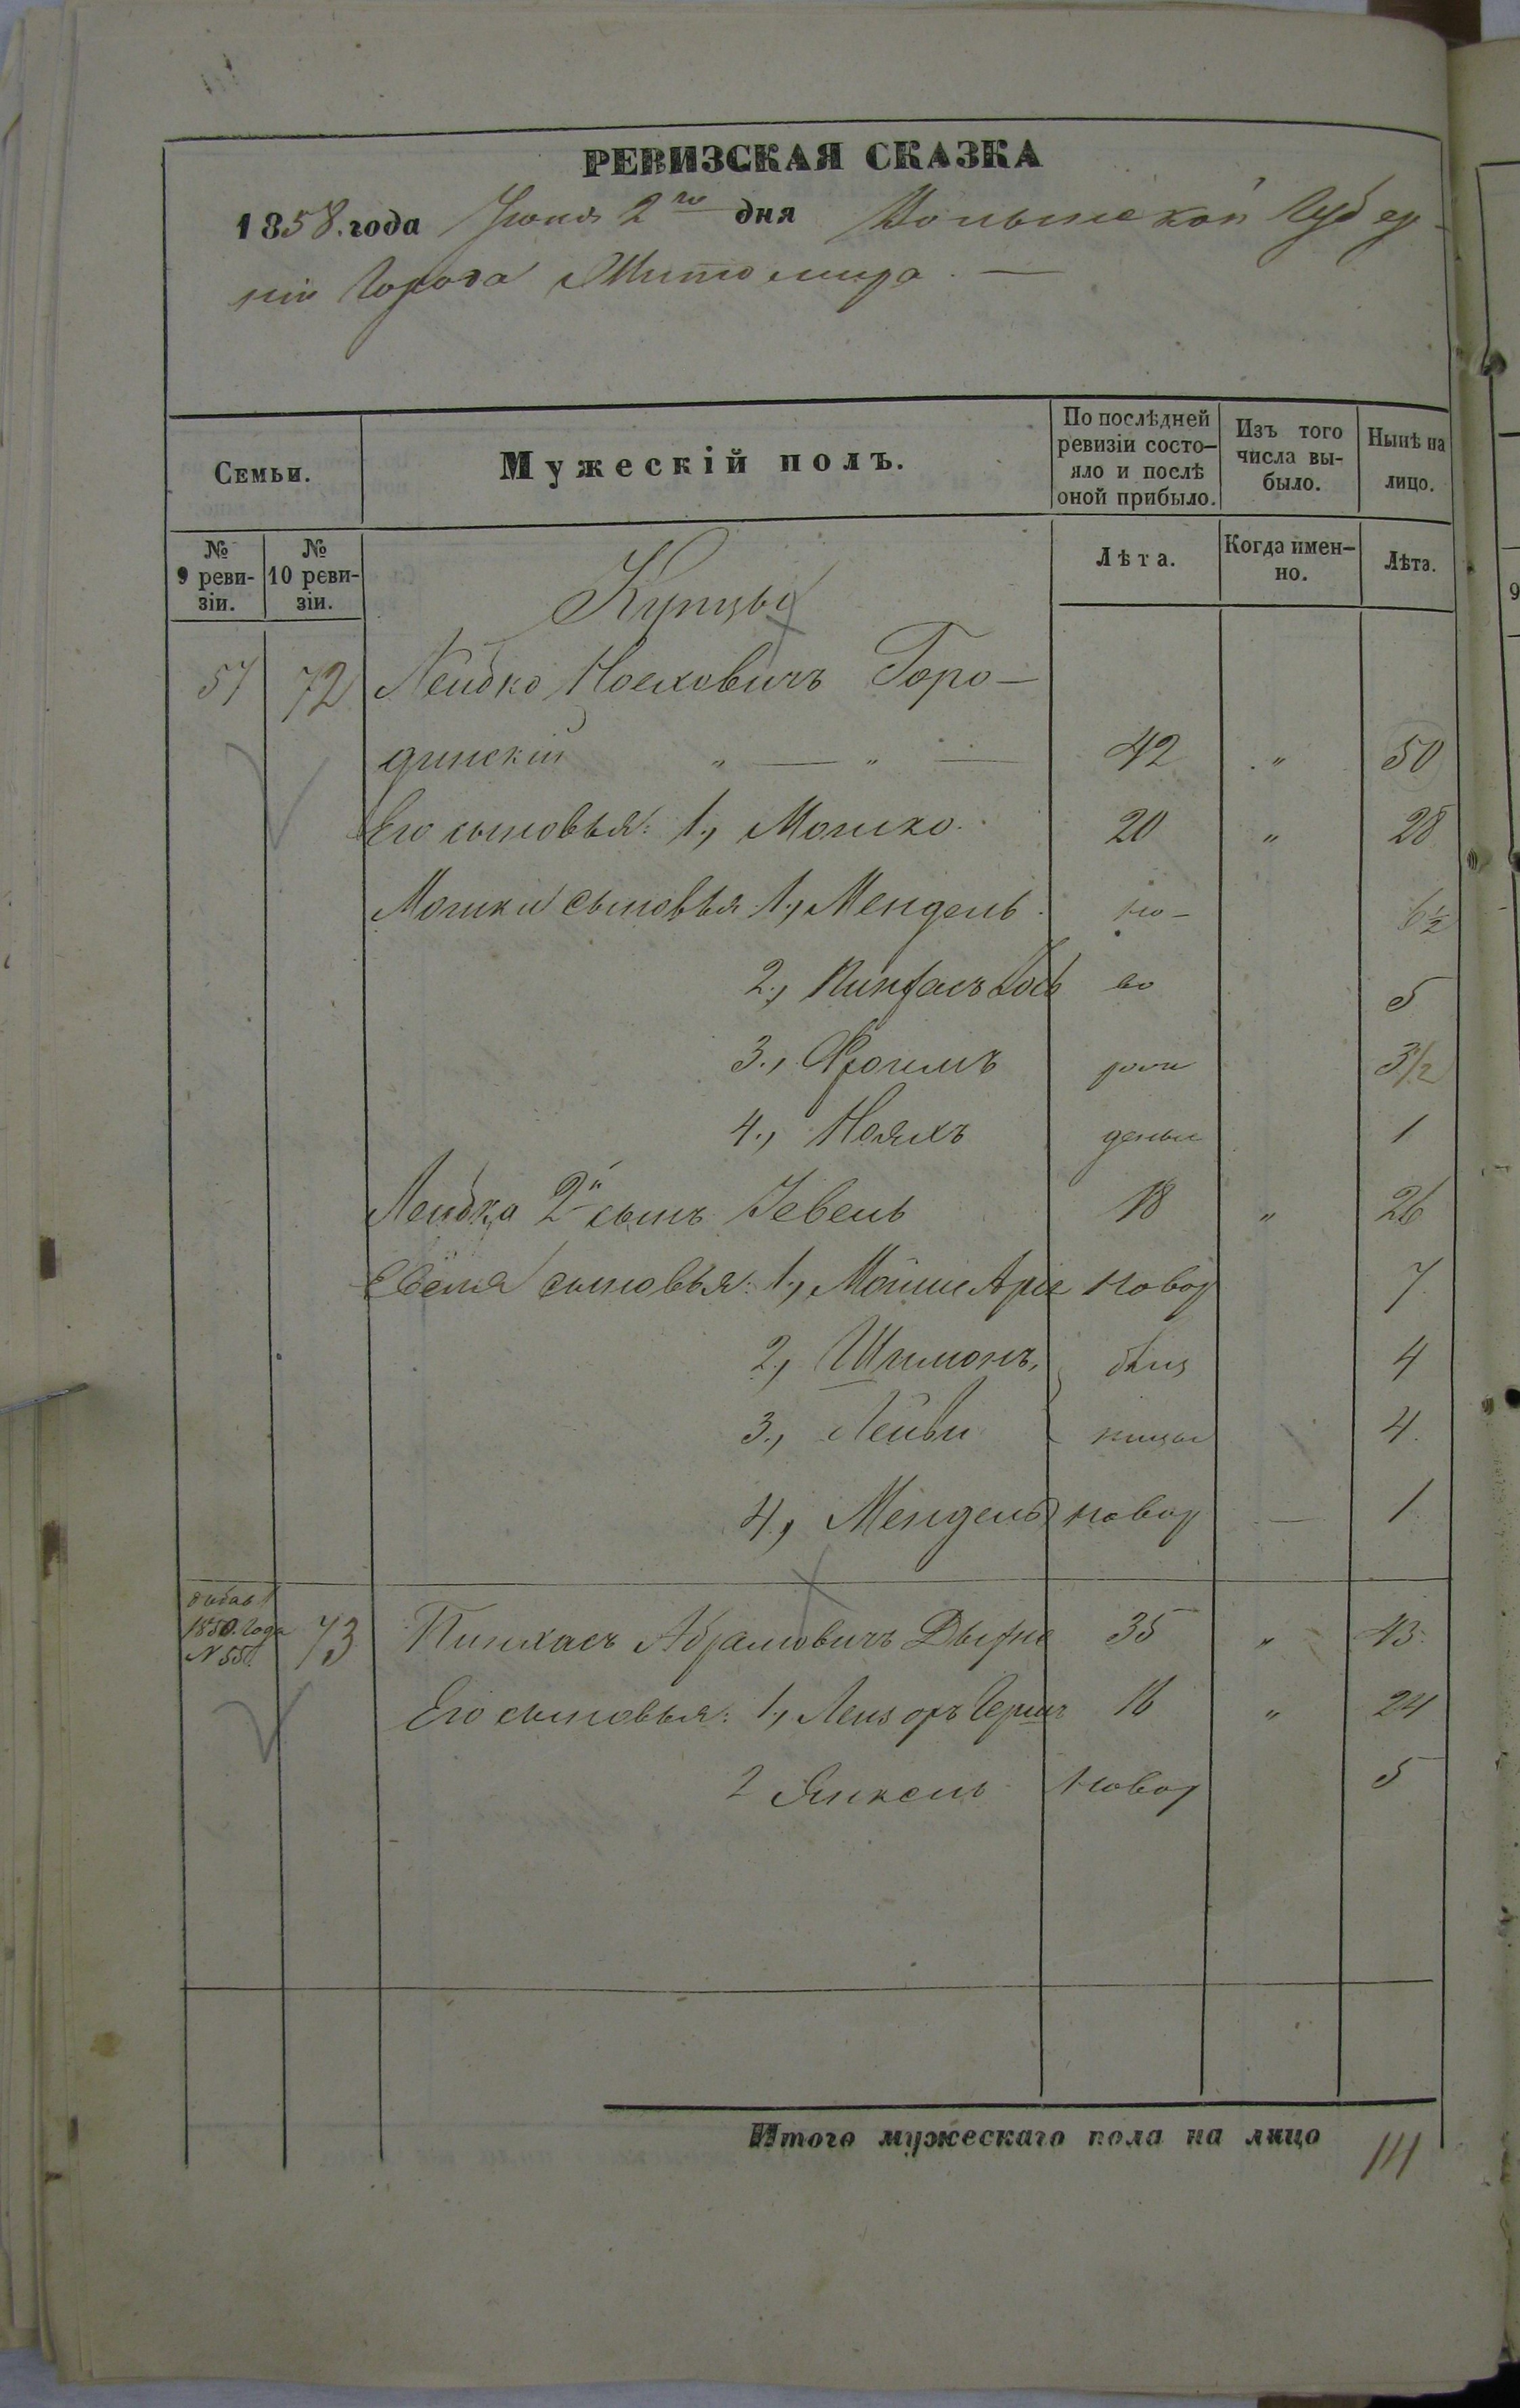 РЕВИЗСКАЯ СКАЗКА
1858. года Іюня 2го дня Волынской Губер-
ніи Города Житомира. —
Семьи.
Мужескій полъ.
По послѣдней ревизіи состо-яло и послѣ оной прибыло.
Изъ того числа вы-было.
Нынѣ на лицо.
№ 9 реви-зіи.
№ 10 реви-зіи.
Лѣта.
Когда имен-но.
Лѣта.
Купцы
57 72 Лейбко Ноеховичъ Горо-
динскій " — " — 42 " 50
Его сыновья: 1., Мошко. 20 " 28
Мошки сыновья 1., Мендель. но- 6½
2., Пинхасъ во 5
3., Фроимъ рож 3½
4., Нояхъ дены 1
Лейбка 2й сынъ Іевель 18 " 26
Евеля сыновья: 1., Мойше Аріе Новор 7
2., Шимонъ, 4
3., Лейви 4.
4., Мендель новор — 1
добав 1850. Года N 55. 73 Пинхасъ Абрамовичъ 35 " 43.
Его сыновья: 1., Лейзоръ Герш 16 " 24
2 Янкель Новор 5
Итого мужескаго пола на лицо 14